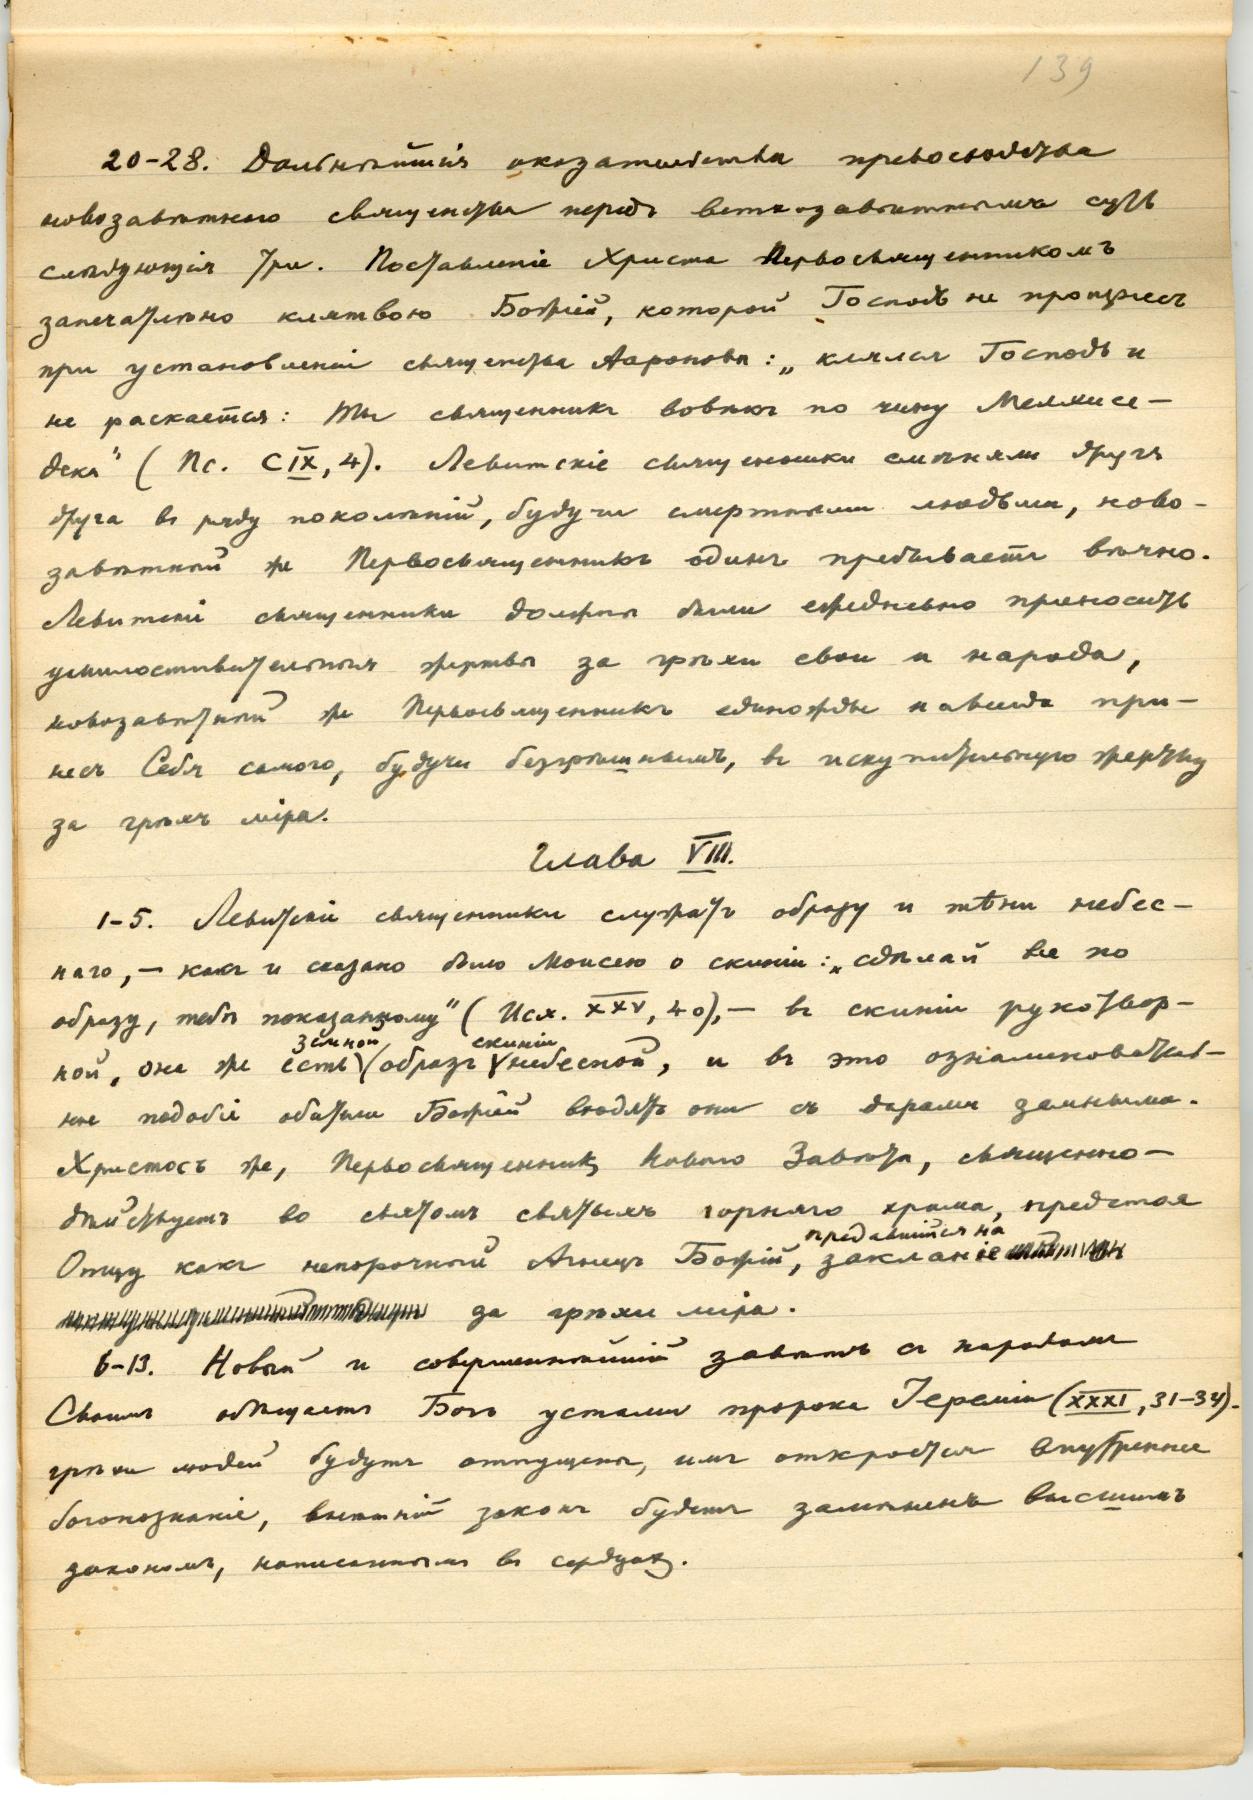 139
20-28. Дальнѣйшія доказательства превосходства
новозавѣтнаго священства передъ ветхозавѣтнымъ суть
слѣдующія три. Поставленіе Христа Первосвященникомъ
запечатлѣно клятвою Божіей, которой Господь не произнесъ
при установленіи священства Ааронова: „клялся Господь и
не раскается: Ты священникъ вовѣкъ по чину Мелхисе-
дека" (Пс. CIX, 4). Левитскіе священники смѣняли другъ
друга въ ряду поколѣній, будучи смертными людьми, ново-
завѣтный же Первосвященникъ одинъ пребываетъ вѣчно.
Левитскіе священники должны были ежедневно приносить
умилостивительныя жертвы за грѣхи свои и народа,
новозавѣтный же Первосвященникъ единожды навсегда при-
несъ Себя самого, будучи безгрѣшнымъ, въ искупительную жертву
за грѣхъ міра.
Глава VIII.
1-5. Левитскіе священники служатъ образу и тѣни небес-
наго, - какъ и сказано было Моисею о скиніи: „сдѣлай все по
образу, тебѣ показанному" (Исх. XXV, 40), - въ скиніи рукотвор-
земной скиніи
ной, она же есть образъ небесной, и въ это ознаменователь-
ное подобіе обители Божіей входятъ они съ дарами земными.
Христосъ же, Первосвященникъ Новаго Завѣта, священно-
дѣйствуетъ во святомъ святыхъ горняго храма, предстоя
предавшійся на
Отцу какъ непорочный Агнецъ Божій, закланіе
за грѣхи міра.
6-13. Новый и совершеннѣйшій завѣтъ съ народомъ
Своимъ обѣщаетъ Богъ устами пророка Іереміи (XXXI, 31-34).
грѣхи людей будутъ отпущены, имъ откроется внутреннее
богопознаніе, внѣшній законъ будетъ замѣненъ высшимъ
закономъ, написаннымъ въ сердцахъ.